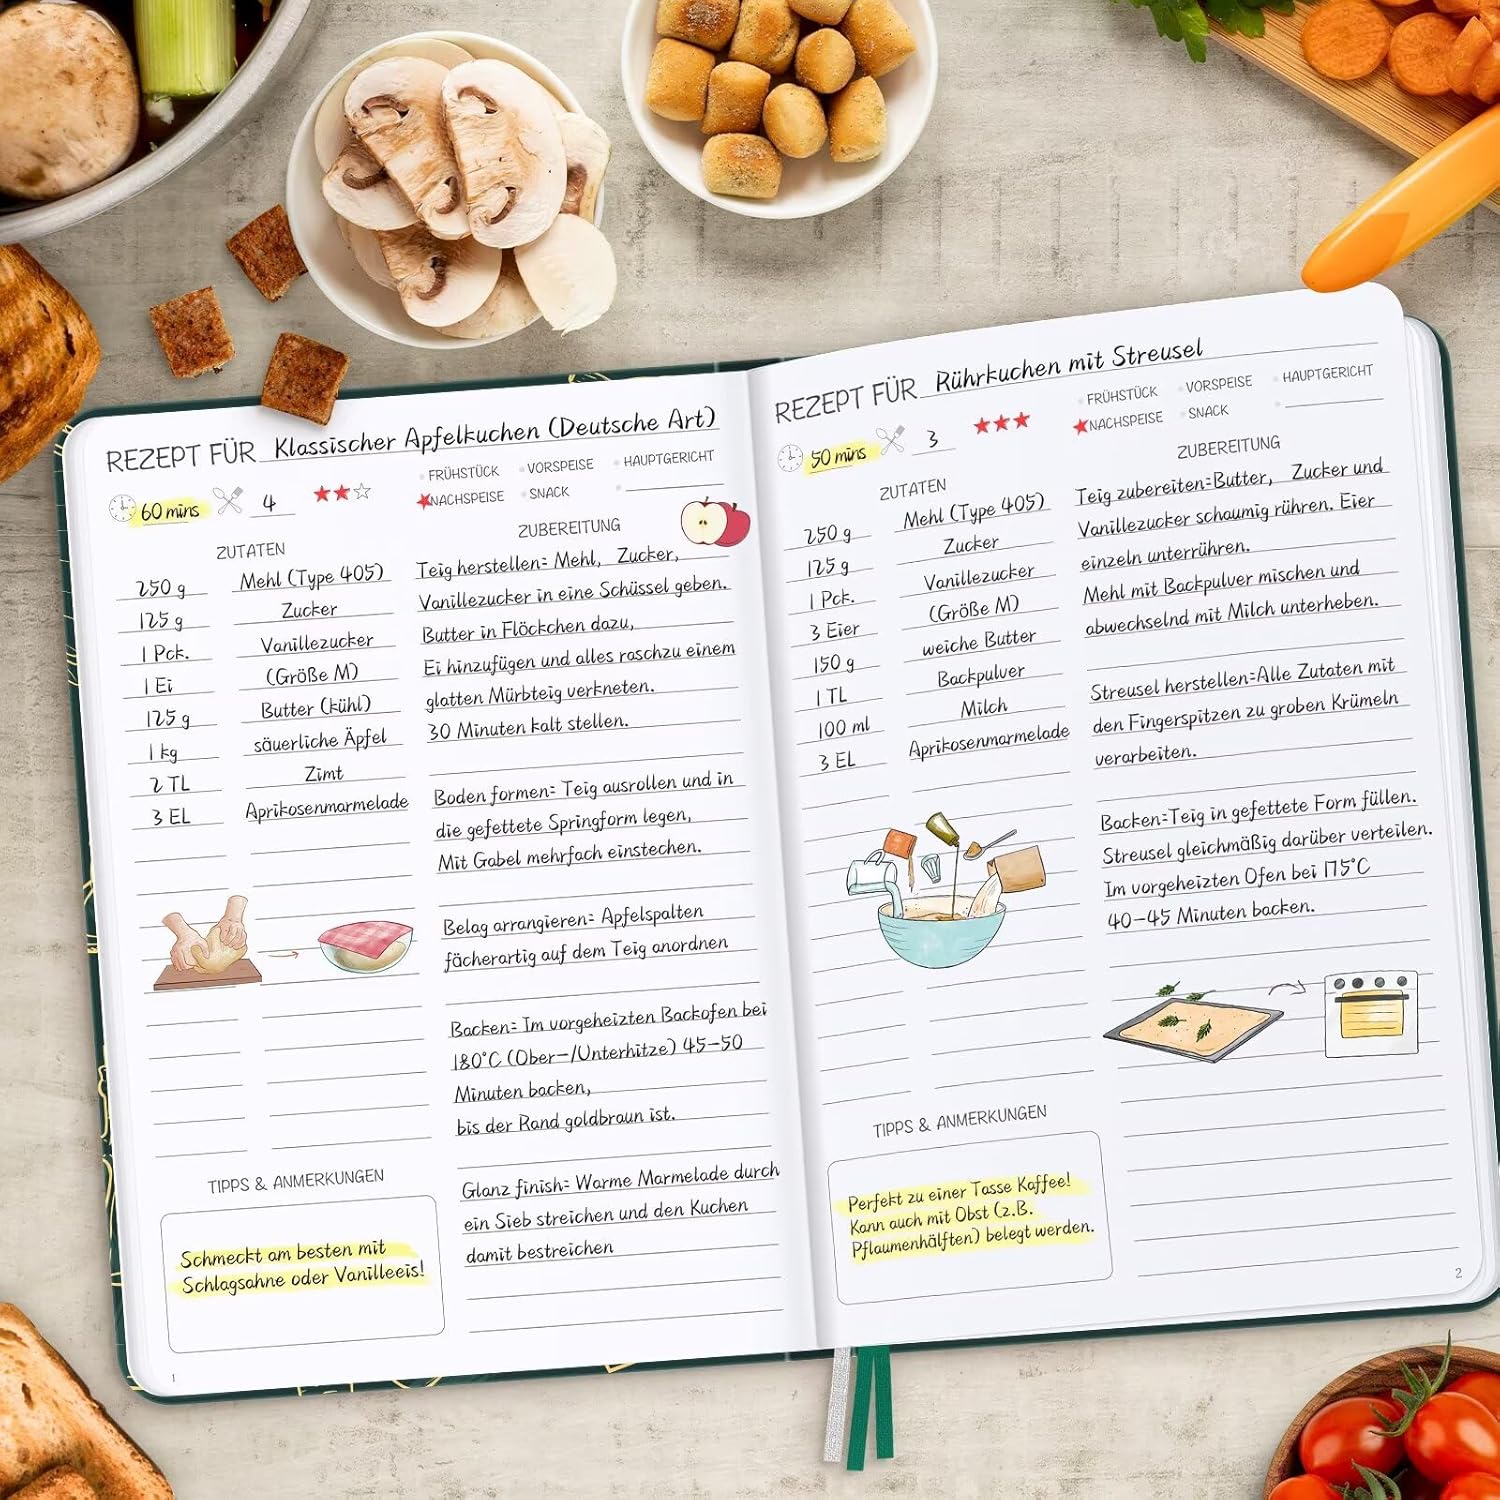 REZEPT FÜR Klassischer Apfelkuchen (Deutsche Art)
60 mins 4
FRÜHSTÜCK VORSPEISE HAUPTGERICHT
NACHSPEISE SNACK
ZUTATEN
250 g Mehl (Type 405)
125 g Zucker
1 Pck. Vanillezucker
1 Ei (Größe M)
125 g Butter (kühl)
1 kg säuerliche Äpfel
2 TL Zimt
3 EL Aprikosenmarmelade
TIPPS & ANMERKUNGEN
Schmeckt am besten mit
Schlagsahne oder Vanilleeis!
1
ZUBEREITUNG
Teig herstellen= Mehl, Zucker,
Vanillezucker in eine Schüssel geben.
Butter in Flöckchen dazu,
Ei hinzufügen und alles raschzu einem
glatten Mürbteig verkneten.
30 Minuten kalt stellen.
Boden formen= Teig ausrollen und in
die gefettete Springform legen,
Mit Gabel mehrfach einstechen.
Belag arrangieren= Apfelspalten
fächerartig auf dem Teig anordnen
Backen= Im vorgeheizten Backofen bei
180°C (Ober-/Unterhitze) 45-50
Minuten backen,
bis der Rand goldbraun ist.
Glanz finish= Warme Marmelade durch
ein Sieb streichen und den Kuchen
damit bestreichen
REZEPT FÜR Rührkuchen mit Streusel
50 mins 3
FRÜHSTÜCK VORSPEISE HAUPTGERICHT
NACHSPEISE SNACK
ZUTATEN
250 g Mehl (Type 405)
125 g Zucker
1 Pck. Vanillezucker
3 Eier (Größe M)
150 g weiche Butter
1 TL Backpulver
100 ml Milch
3 EL Aprikosenmarmelade
TIPPS & ANMERKUNGEN
Perfekt zu einer Tasse Kaffee!
Kann auch mit Obst (z.B.
Pflaumenhälften) belegt werden.
ZUBEREITUNG
Teig zubereiten=Butter, Zucker und
Vanillezucker schaumig rühren. Eier
einzeln unterrühren.
Mehl mit Backpulver mischen und
abwechselnd mit Milch unterheben.
Streusel herstellen=Alle Zutaten mit
den Fingerspitzen zu groben Krümeln
verarbeiten.
Backen=Teig in gefettete Form füllen.
Streusel gleichmäßig darüber verteilen.
Im vorgeheizten Ofen bei 175°C
40-45 Minuten backen.
2